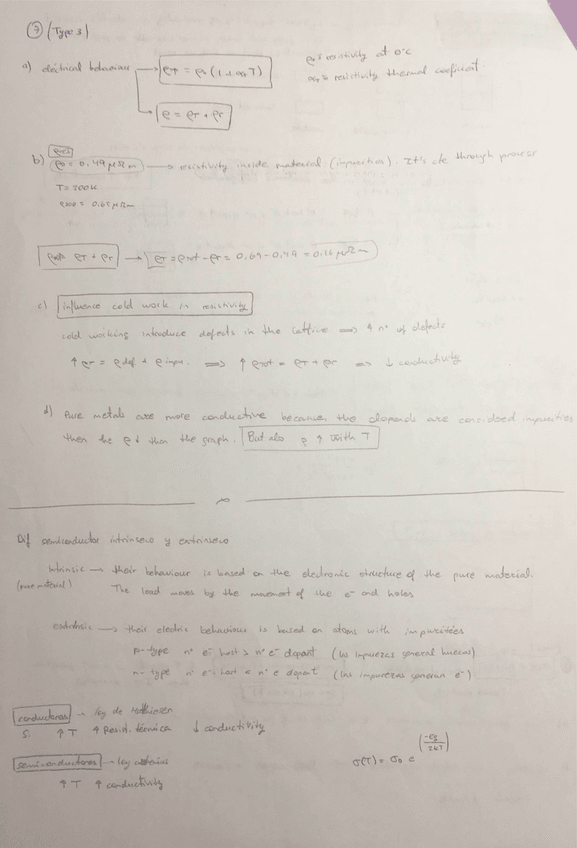 7 (Type 3)
a) electrical behaviour → ρT = ρ0 (1 + αT T) ρ0 ≡ resistivity at 0°C
αT ≡ resistivity thermal coefficient
ρ = ρT + ρr
b) ρ0 = 0,49 μΩm → resistivity inside material (impurities). It's cte through process
T = 300K
= 0.65 μΩm
ρT + ρr → ρT = ρtot - ρr = 0,65 - 0,49 = 0.16 μΩm
c) influence cold work in resistivity
cold working introduce defects in the lattice ⇒ ↑ nº of defects
↑ ρr = ρdef + ρimpu. ⇒ ↑ ρtot = ρT + ρr ⇒ ↓ conductivity
d) Pure metals are more conductive because the are impurities
then the ρ ↓ than the graph. But also ρ ↑ with T
Dif semiconductor intrinseco y extrinseco
Intrinsic → their behaviour is based on the electronic structure of the pure material.
(pure material) The load moves by the movement of the e- and holes
extrinsic → their electric behaviour is based on atoms with impuritées
p-type nº e- host > nº e- dopant (las impurezas generan huecos)
n-type nº e- host < nº e dopant (las impurezas generan e-)
conductores → ley de
Si ↑ T ↑ Resist. térmica ↓ conductivity
semiconductores → ley σ(T) = σ0 e^(-Eg/2kT)
↑ T ↑ conductivity